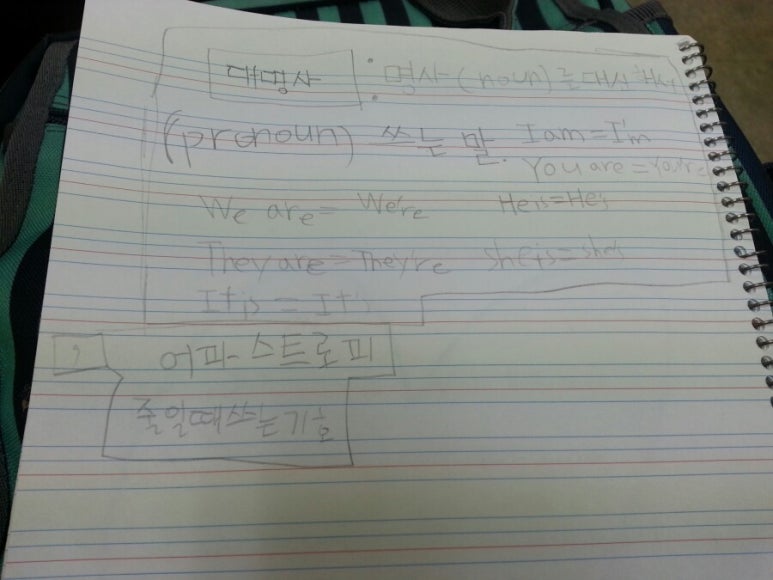 대명사 : 명사 (noun)를 대신해서
(pronoun) 쓰는 말. I am = I'm
You are = You're
We are = We're He is = He's
They are = They're She is = she's
It is = It's
, 어파스트로피
줄일때쓰는기호